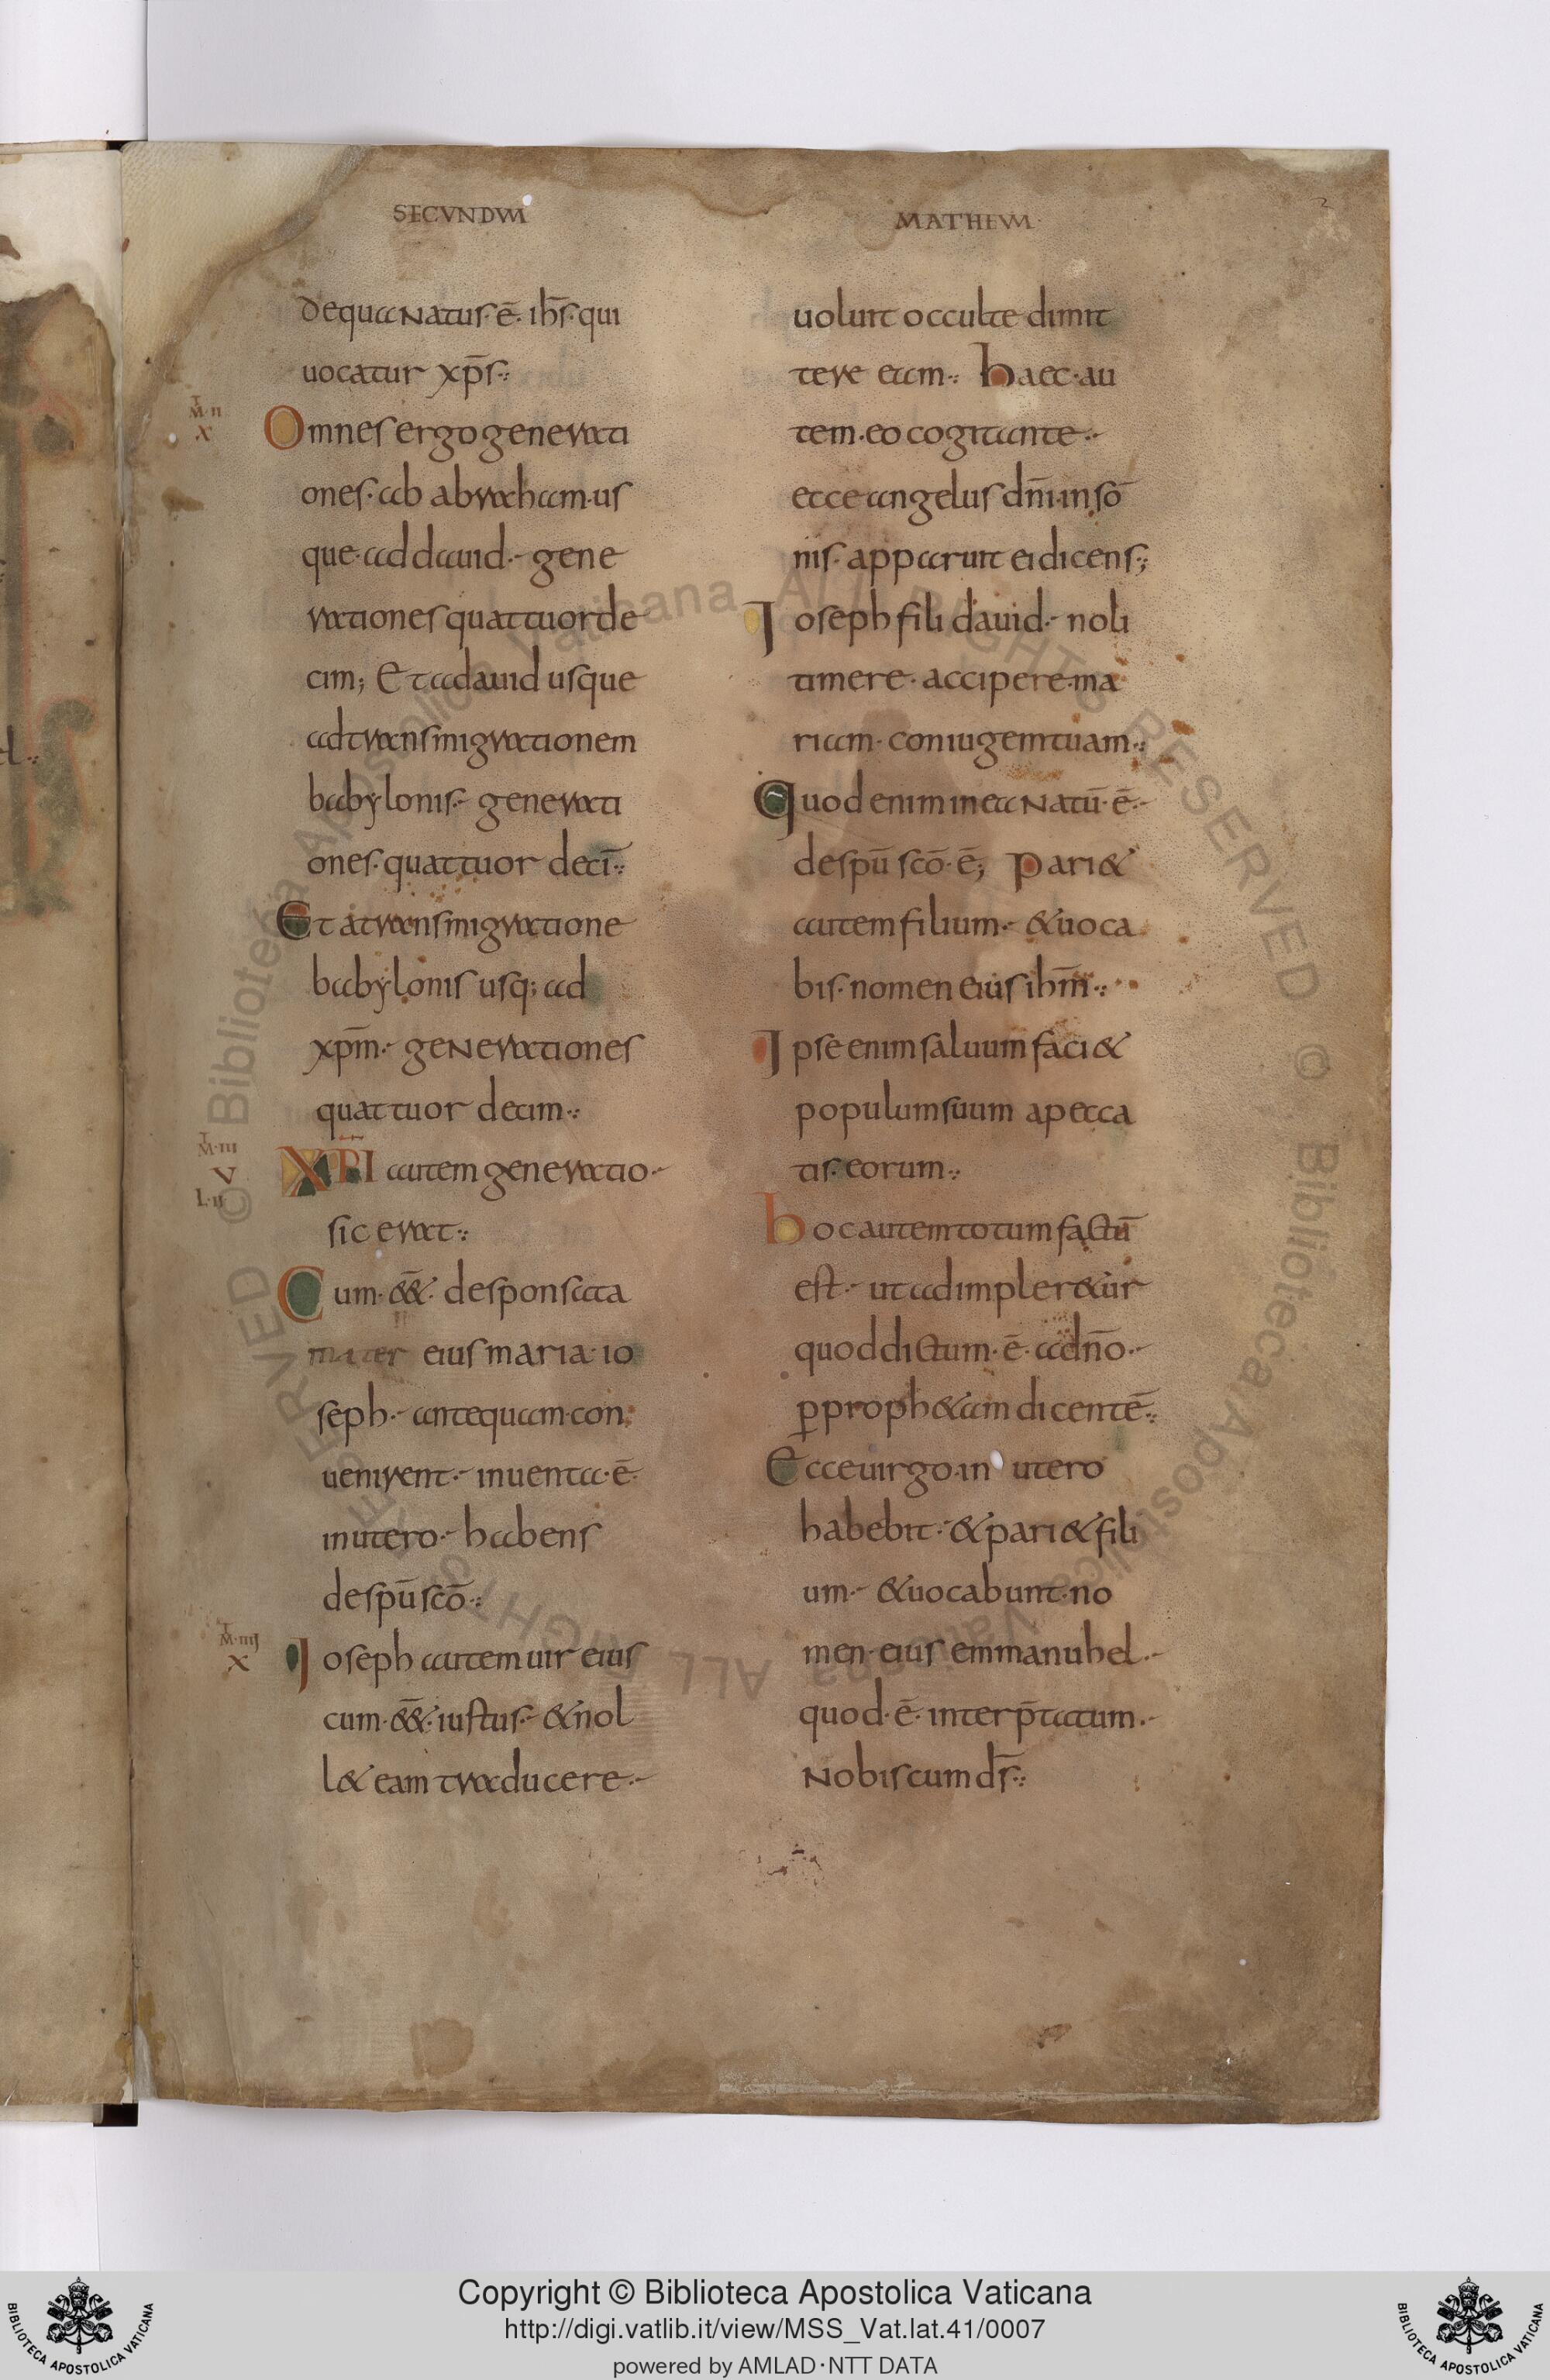 SECVNDVM
de qua natus·ē·ihs̄·qui
uocatur xp̄s·:
M·II
X
Omnes ergo generati
ones·ab abraham·us
que·ad dauid·- gene
rationes quattuorde
cim; Et addauid usque
adtransmigrationem
babylonis·- generati
ones·quattuor deci̅·:
Et atransmigratione
babylonis usq; ad
xp̄m·- generationes
quattuor decim·:
M·III
V
L·II
XP̄I autem generatio·-
sic erat·:
Cum·&&̄· desponsata
mater eius maria·io
seph·- antequam·con
uenirent·- inuenta·ē·
inutero·- habens
despū scō·:
M·IIII
X
Ioseph autem uir eius
cum·&&̄·iustus·- &nol
l& eam traducere·-
MATHEVM·
uoluit occulte dimit
tere eam·: Haec·au
tem·eo cogitante·-
ecce angelus dn̄i·insō
nis·apparuit ei dicens;
Ioseph fili dauid·- noli
timere·accipere·ma
riam·coniugem tuam·:
Quod enim in ea natū·ē·-
despū scō·ē; Pari&
autem filium·- &uoca
bis·nomen eius ihm̄·:
Ipse enim saluum faci&
populum suum apecca
tis·eorum·:
Hoc autem totum factū
est·- ut adimpler&ur
quod dictum·ē·adn̄o·-
p̱proph&am dicentē·:
Ecce uirgo·in utero
habebit·- &pari& fili
um·- &uocabunt·no
men·eius emmanuhel·-
quod·ē·interp̄tatum·-
Nobiscum ds̄·:
Copyright © Biblioteca Apostolica Vaticana
http://digi.vatlib.it/view/MSS_Vat.lat.41/0007
powered by AMLAD·NTT DATA
BIBLIOTECA APOSTOLICA VATICANA
BIBLIOTECA APOSTOLICA VATICANA
© Biblioteca Apostolica Vaticana ALL RIGHTS RESERVED
© Biblioteca Apostolica Vaticana ALL RIGHTS RESERVED